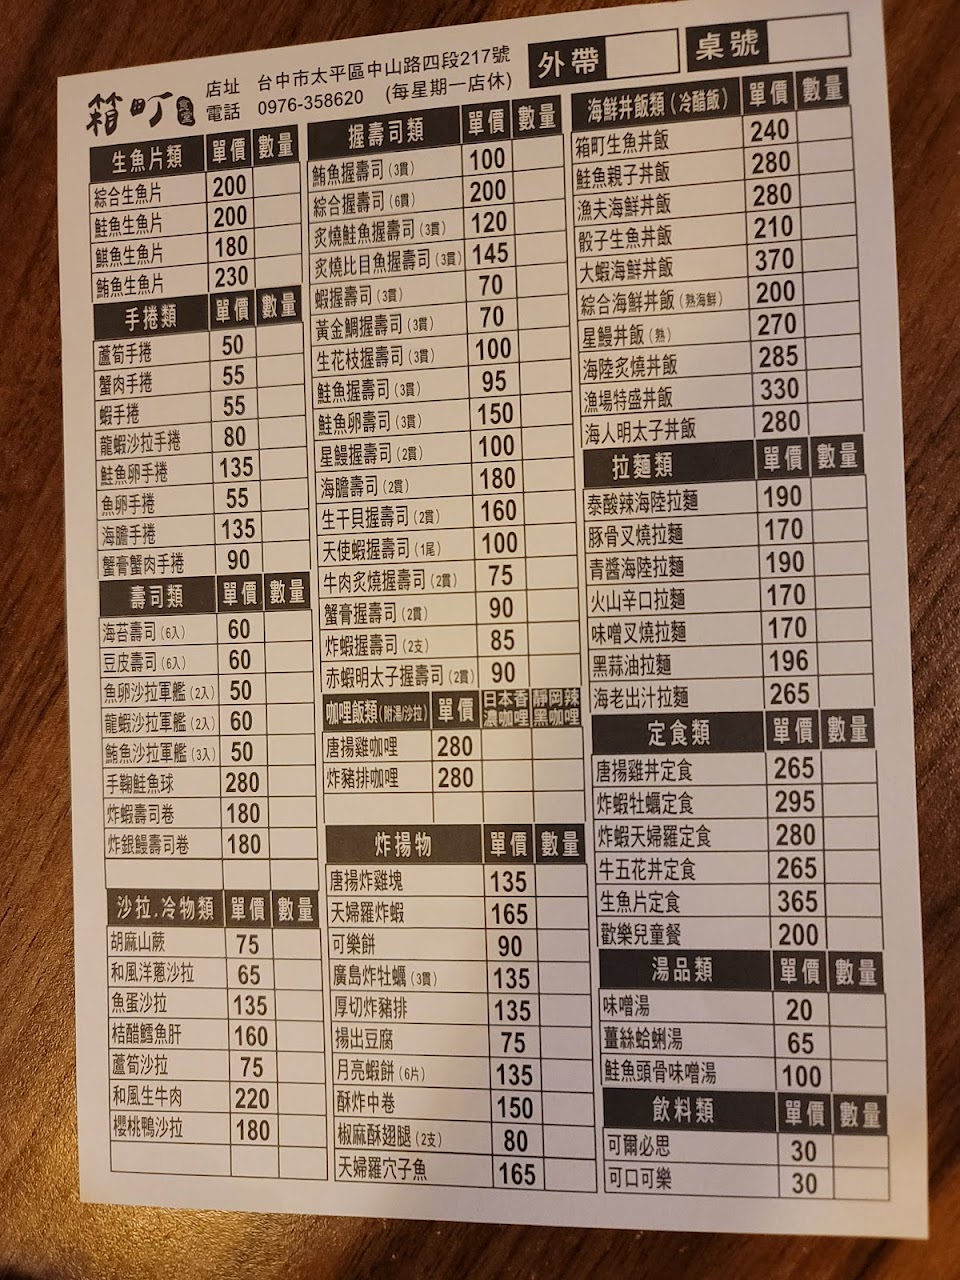 箱町食堂
店址 台中市太平區中山路四段217號
電話 0976-358620 (每星期一店休)
外帶
桌號
生魚片類 單價 數量
綜合生魚片 200
鮭魚生魚片 200
鯕魚生魚片 180
鮪魚生魚片 230
手捲類 單價 數量
蘆筍手捲 50
蟹肉手捲 55
蝦手捲 55
龍蝦沙拉手捲 80
鮭魚卵手捲 135
魚卵手捲 55
海膽手捲 135
蟹膏蟹肉手捲 90
壽司類 單價 數量
海苔壽司(6入) 60
豆皮壽司(6入) 60
魚卵沙拉軍艦(2入) 50
龍蝦沙拉軍艦(2入) 60
鮪魚沙拉軍艦(3入) 50
手鞠鮭魚球 280
炸蝦壽司卷 180
炸銀鰻壽司卷 180
沙拉.冷物類 單價 數量
胡麻山蕨 75
和風洋蔥沙拉 65
魚蛋沙拉 135
桔醋鱈魚肝 160
蘆筍沙拉 75
和風生牛肉 220
櫻桃鴨沙拉 180
握壽司類 單價 數量
鮪魚握壽司(3貫) 100
綜合握壽司(6貫) 200
炙燒鮭魚握壽司(3貫) 120
炙燒比目魚握壽司(3貫) 145
蝦握壽司(3貫) 70
黃金鯛握壽司(3貫) 70
生花枝握壽司(3貫) 100
鮭魚握壽司(3貫) 95
鮭魚卵壽司(3貫) 150
星鰻握壽司(2貫) 100
海膽壽司(2貫) 180
生干貝握壽司(2貫) 160
天使蝦握壽司(1尾) 100
牛肉炙燒握壽司(2貫) 75
蟹膏握壽司(2貫) 90
炸蝦握壽司(2支) 85
赤蝦明太子握壽司(2貫) 90
咖哩飯類(附湯/沙拉) 單價 日本香濃咖哩 靜岡辣黑咖哩
唐揚雞咖哩 280
炸豬排咖哩 280
炸揚物 單價 數量
唐揚炸雞塊 135
天婦羅炸蝦 165
可樂餅 90
廣島炸牡蠣(3貫) 135
厚切炸豬排 135
揚出豆腐 75
月亮蝦餅(6片) 135
酥炸中卷 150
椒麻酥翅腿(2支) 80
天婦羅穴子魚 165
海鮮丼飯類(冷醋飯) 單價 數量
箱町生魚丼飯 240
鮭魚親子丼飯 280
漁夫海鮮丼飯 280
骰子生魚丼飯 210
大蝦海鮮丼飯 370
綜合海鮮丼飯(熟海鮮) 200
星鰻丼飯(熟) 270
海陸炙燒丼飯 285
漁場特盛丼飯 330
海人明太子丼飯 280
拉麵類 單價 數量
泰酸辣海陸拉麵 190
豚骨叉燒拉麵 170
青醬海陸拉麵 190
火山辛口拉麵 170
味噌叉燒拉麵 170
黑蒜油拉麵 196
海老出汁拉麵 265
定食類 單價 數量
唐揚雞丼定食 265
炸蝦牡蠣定食 295
炸蝦天婦羅定食 280
牛五花丼定食 265
生魚片定食 365
歡樂兒童餐 200
湯品類 單價 數量
味噌湯 20
薑絲蛤蜊湯 65
鮭魚頭骨味噌湯 100
飲料類 單價 數量
可爾必思 30
可口可樂 30